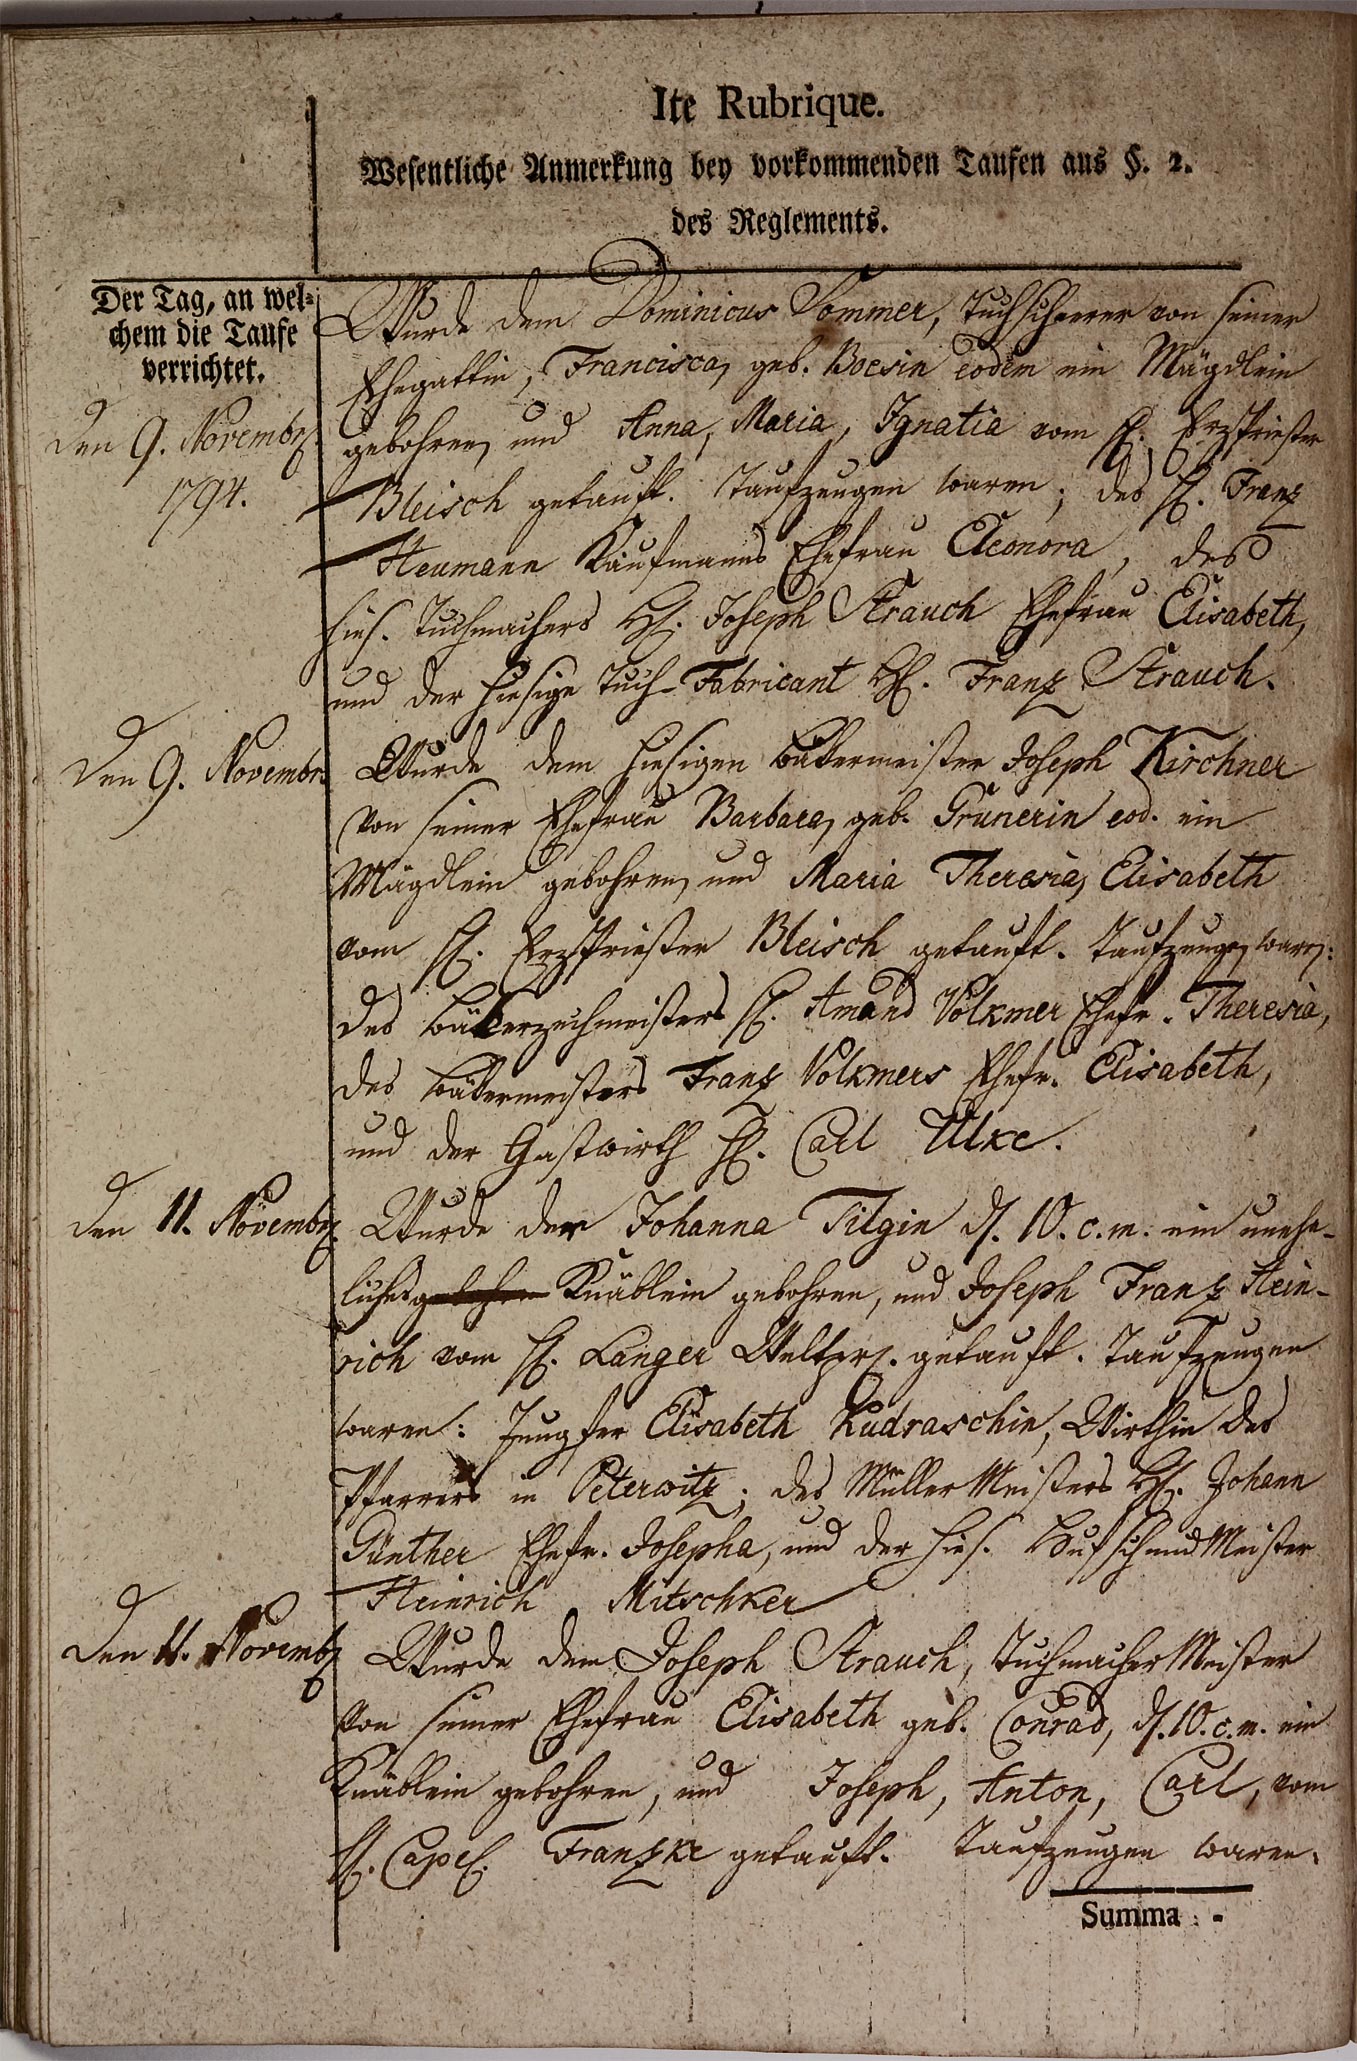 Ite Rubrique.
Wesentliche Anmerkung bey vorkommenden Taufen aus §. 2.
des Reglements.
Der Tag, an wel-
chem die Taufe
verrichtet.
Den 9. Novembr.
1794.
Wurde dem Dominicus Sommer, Tuchscheerer von seiner
Ehegattin, Francisca, geb. Boesin eodem ein Mägdlein
gebohren, und Anna, Maria, Ignatia vom H. Erzpriester
Bleisch getauft. Taufzeugen waren; des H. Franz
Heumann Kaufmanns Ehefrau Eleonora, des
hies. Tuchmachers H. Joseph Strauch Ehefrau Elisabeth,
und der hiesige Tuch-Fabricant H. Franz Strauch.
Den 9. Novembr.
Wurde dem hiesigen Bäkermeister Joseph Kirchner
von seiner Ehefrau Barbara, geb. Grunerin eod. ein
Mägdlein gebohren, und Maria Theresia, Elisabeth
vom H. Erzpriester Bleisch getauft. Taufzeugen waren:
des Bäkerzechmeisters H. Amand Volkmer Ehefr. Theresia,
des Bäkermeisters Franz Volkmers Ehefr. Elisabeth,
und der Gastwirth H. Carl Ulke.
Den 11. Novembr.
Wurde der Johanna Tilgin d. 10. c. m. ein unehe-
liches Knäblein gebohren, und Joseph Franz Hein-
rich vom H. Langer Weltpr. getauft. Taufzeugen
waren: Jungfer Elisabeth Kudraschin, Wirthin des
Pfarrers in Peterwitz; des Müller Meisters H. Johann
Günther Ehefr. Josepha, und der hies. Hufschmid Meister
Heinrich Mitschker
Den 11. Novembr.
Wurde dem Joseph Strauch, Tuchmacher Meister
von seiner Ehefrau Elisabeth geb. Conrad, d. 10. c. m. ein
Knäblein gebohren, und Joseph, Anton, Carl, vom
H. Capel. Franzke getauft. Taufzeugen waren.
Summa -